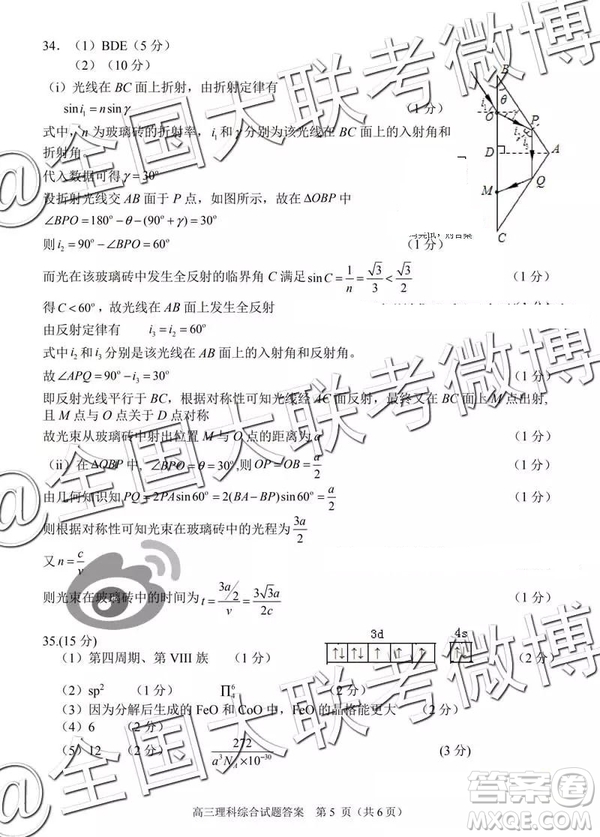 34. (1)BDE(5 分)
(2)(10 分)
(i)光线在 BC 面上折射，由折射定律有
sin i₁ = n sin γ (1 分)
式中，n 为玻璃砖的折射率，i₁和 γ 分别为该光线在 BC 面上的入射角和
折射角。
代入数据可得 γ = 30°
设折射光线交 AB 面于 P 点，如图所示，故在 ΔOBP 中
∠BPO = 180° − θ − (90° + γ) = 30°
则 i₂ = 90° − ∠BPO = 60° (1 分)
而光在该玻璃砖中发生全反射的临界角 C 满足 sin C = 1/n = √3/3 < √3/2 (1 分)
得 C < 60°，故光线在 AB 面上发生全反射
由反射定律有 i₃ = i₂ = 60°
式中 i₂ 和 i₃ 分别是该光线在 AB 面上的入射角和反射角。
故∠APQ = 90° − i₃ = 30° (1 分)
即反射光线平行于 BC，根据对称性可知光线经 AC 面反射，最终又在 BC 面上 M 点射出，
且 M 点与 O 点关于 D 点对称
故光束从玻璃砖中射出位置 M 与 O 点的距离为 a (1 分)
(ii)在 ΔOBP 中，∠BPO = θ = 30°,则 OP = OB = a/2 (1 分)
由几何知识知 PQ = 2PA sin 60° = 2(BA − BP) sin 60° = a/2 (1 分)
则根据对称性可知光束在玻璃砖中的光程为 3a/2
又 n = c/v
则光束在玻璃砖中的时间为 t = (3a/2)/v = 3√3a/2c (1 分)
B
θ
i₁
O
P
i₂
i₃
D
A
Q
M
C
35.(15 分)
3d 4s
(1)第四周期、第 VIII 族 (1 分) ↑↓ ↑↓ ↑ ↑ ↑ ↑↓ (1 分)
(2)sp² (1 分) (2 分)
(3)因为分解后生成的 FeO 和 CoO 中，FeO 的晶格能更大 (2 分)
(4)6 (2 分)
(5)12 (2 分) 272/(a³N_A×10⁻³⁰) (3 分)
高三理科综合试题答案 第 5 页（共 6 页）
@全国大联考微博
@全国大联考微博
@全国大联考微博
答案圈